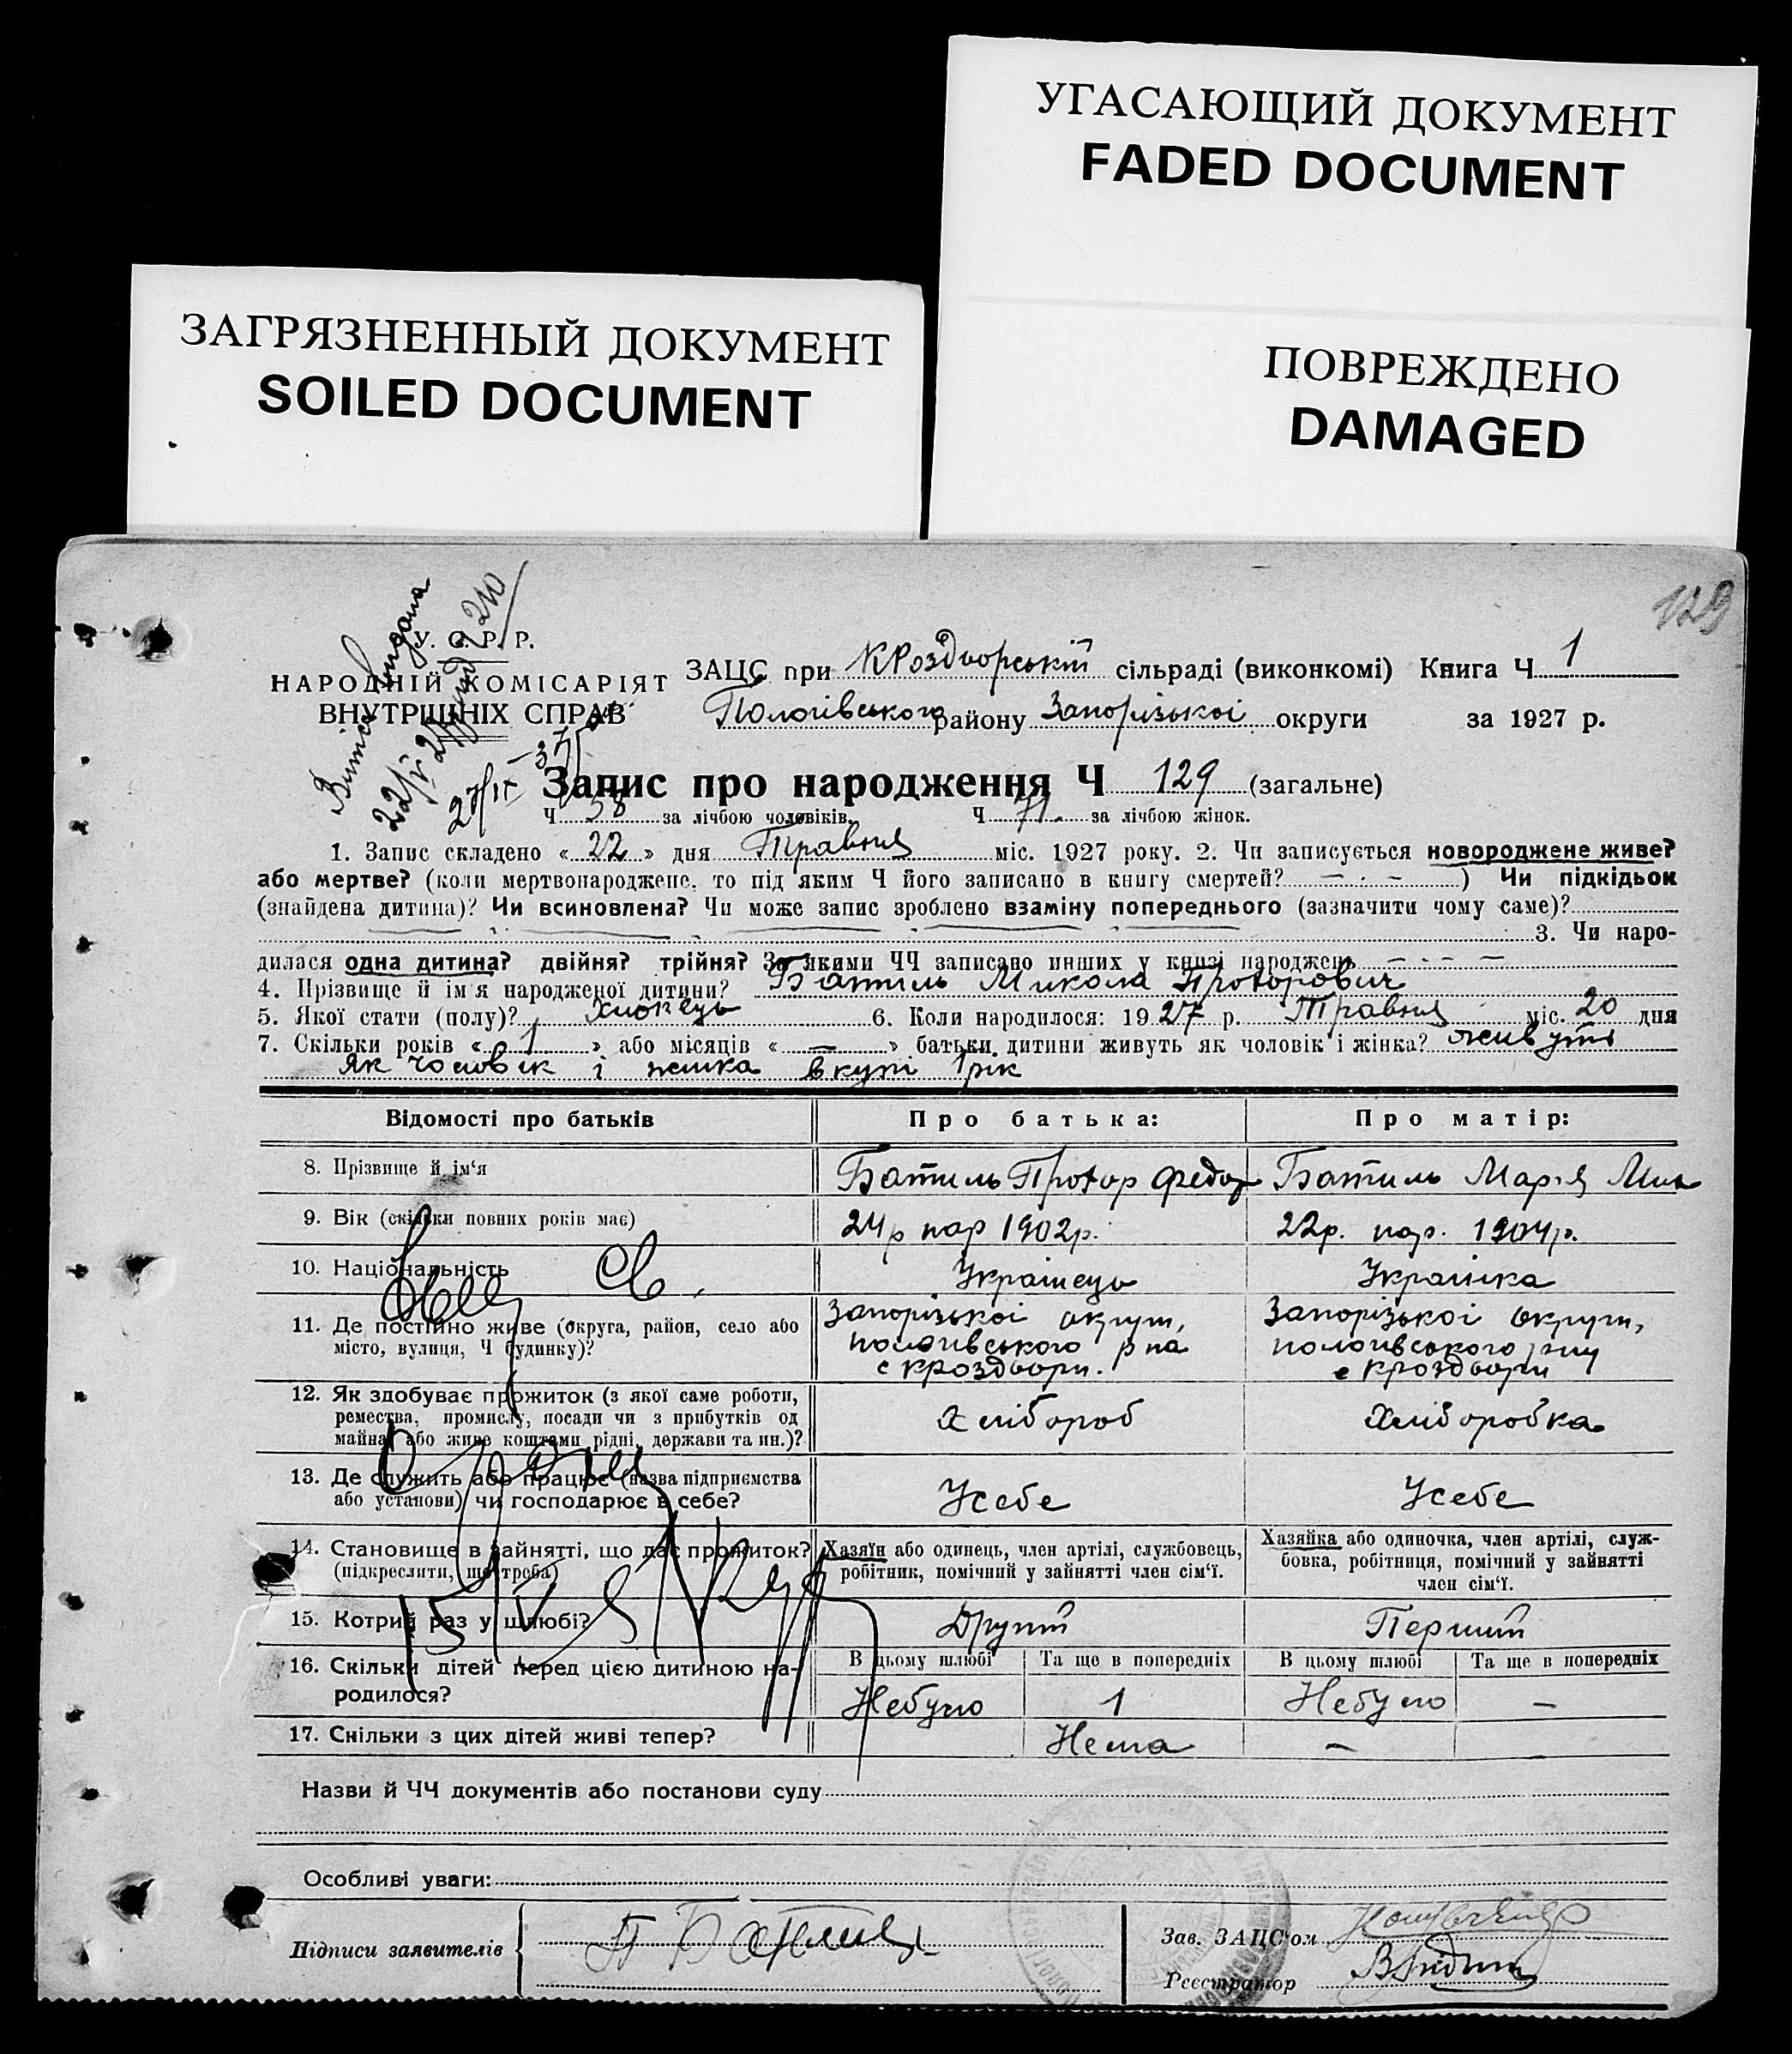 УГАСАЮЩИЙ ДОКУМЕНТ
FADED DOCUMENT
ЗАГРЯЗНЕННЫЙ ДОКУМЕНТ
SOILED DOCUMENT
ПОВРЕЖДЕНО
DAMAGED
129
У. С. Р. Р.
НАРОДНІЙ КОМІСАРІЯТ
ВНУТРІШНІХ СПРАВ
ЗАЦС при КРоздворській сільраді (виконкомі) Книга Ч 1
Пологівського району Запорізької округи за 1927 р.
Запис про народження Ч 129 (загальне)
Ч 58 за лічбою чоловіків. Ч 71. за лічбою жінок.
1. Запис складено « 22 » дня Травня міс. 1927 року. 2. Чи записується новороджене живе?
або мертве? (коли мертвонароджене, то під яким Ч його записано в книгу смертей? — · — ) Чи підкідьок
(знайдена дитина)? Чи всиновлена? Чи може запис зроблено взаміну попереднього (зазначити чому саме)?
3. Чи наро-
дилася одна дитина? двійня? трійня? За якими ЧЧ записано инших у книзі народжень — · — · —
4. Прізвище й ім'я народженої дитини? Батиль Микола Прохорович
5. Якої стати (полу)? Хлопець 6. Коли народилося: 1927 р. Травня міс. 20 дня
7. Скільки років « 1 » або місяців « — » батьки дитини живуть як чоловік і жінка? живуть
як чоловік і жінка вкупі 1 рік
Відомості про батьків Про батька: Про матір:
8. Прізвище й ім'я Батиль Прохор Федор Батиль Марія
9. Вік (скільки повних років має) 24р нар 1902р. 22р. нар. 1904р.
10. Національність Українець Українка
11. Де постійно живе (округа, район, село або
місто, вулиця, Ч будинку)?
Запорізької округи,
пологівського р на
с кроздвори.
Запорізької округи,
пологівського р ну
с кроздвори
12. Як здобуває прожиток (з якої саме роботи,
ремества, промислу, посади чи з прибутків од
майна, або живе коштами рідні, держави та ин.)?
Хлібороб Хліборобка
13. Де служить або працює (назва підприємства
або установи) чи господарює в себе?
Усебе Усебе
14. Становище в зайнятті, що дає прожиток?
(підкреслити, що треба)
Хазяїн або одинець, член артілі, службовець,
робітник, помічний у зайнятті член сім'ї.
Хазяйка або одиночка, член артілі, служ-
бовка, робітниця, помічний у зайнятті
член сім'ї.
15. Котрий раз у шлюбі? Другий Перший
16. Скільки дітей перед цією дитиною на-
родилося?
В цьому шлюбі Та ще в попередніх В цьому шлюбі Та ще в попередніх
Небуло 1 Небуло —
17. Скільки з цих дітей живі тепер? Нема —
Назви й ЧЧ документів або постанови суду
Особливі уваги:
Підписи заявителів
Зав. ЗАЦС'ом
Реєстратор